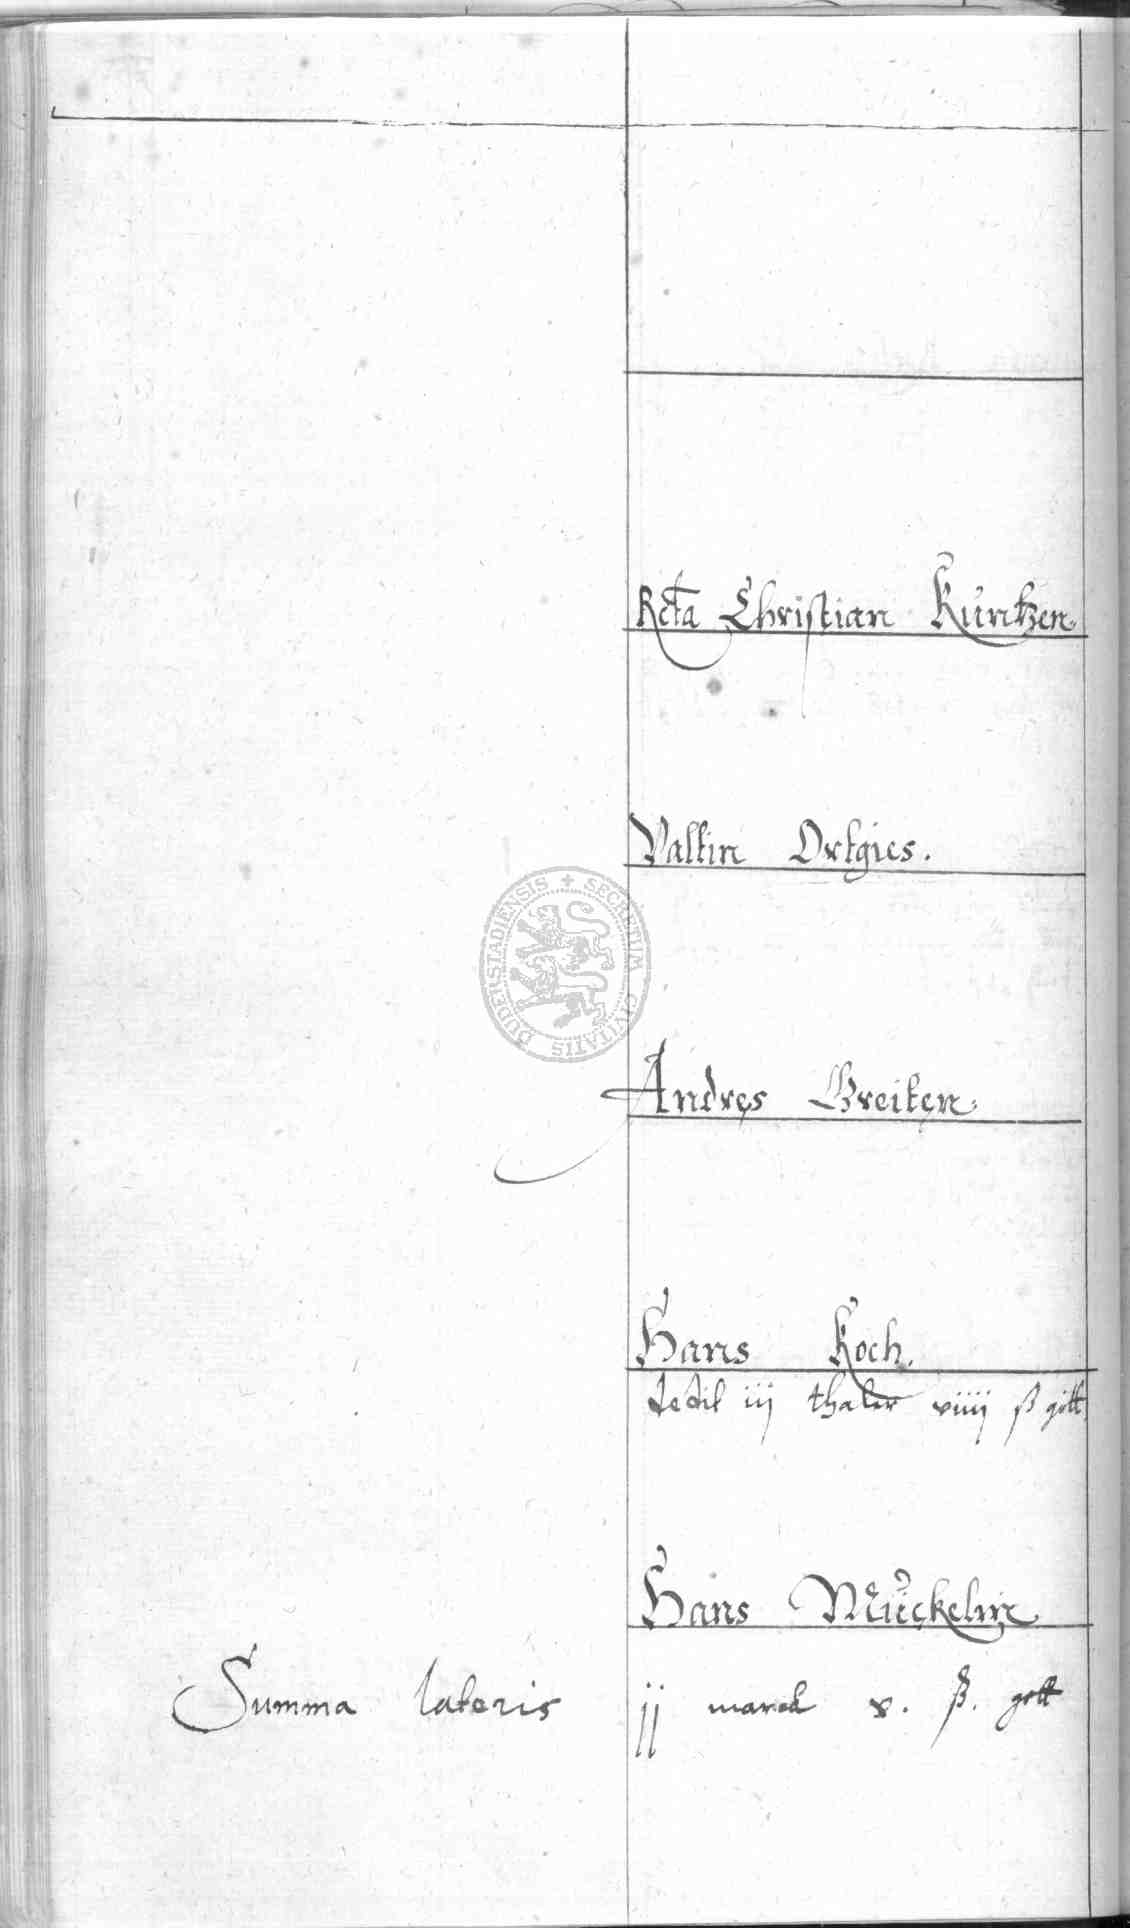 Rcta Christian Kuntzen.
Valtin Ortgies.
SECRETUM CIVITATIS DUDERSTADIENSIS
Andres Greiten.
Hans Koch.
dedit iij thaler viiij ß gott
Hans Muckelm
Summa lateris jj marck v. ß. gott